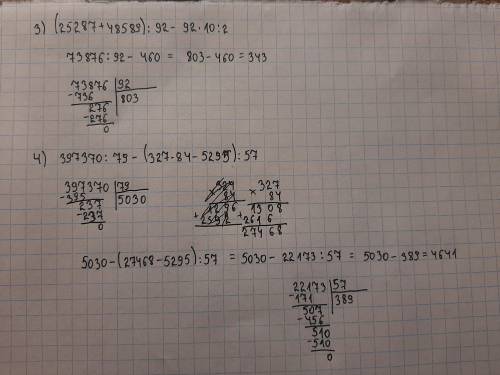 3) (25287+48589):92 - 92·10:2
73876:92 - 460 = 803-460=343
73876 92
-736 803
276
-276
0
4) 397370:79 - (327·84-5295):57
397370 79
-395 5030
237
-237
0
×327
84
1308
+2616
27468
5030-(27468-5295):57 = 5030-22173:57 = 5030-389=4641
22173 57
-171 389
507
-456
510
-510
0